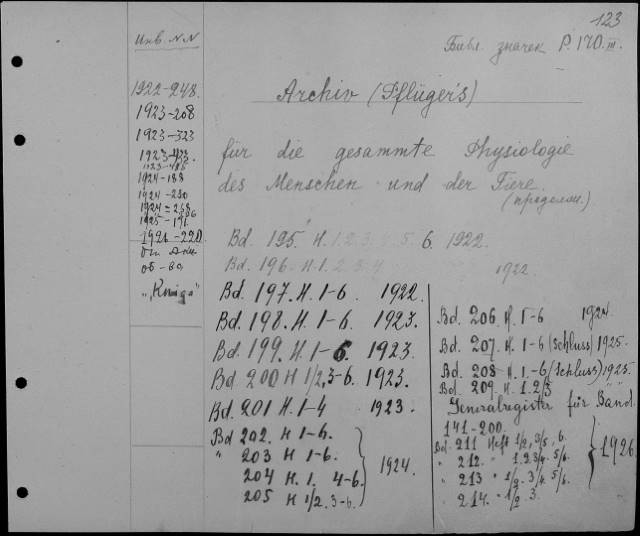 123
Библ. значек P.170.III.
Инв. NN
1922-248.
1923-208
1923-323
1923-433.
1923-485
1924-188
1924-230
1924-268
1925-196
1926-220
От Акц.
об-ва
„Книга"
Archiv (Pflüger's)
für die gesammte Physiologie
des Menschen und der Tiere.
(продолж.)
Bd. 195. H. 1.2.3.4.5. 6. 1922.
Bd. 196. H. 1.2.3.4. 1922.
Bd. 197. H. 1-6. 1922.
Bd. 198. H. 1-6. 1923.
Bd. 199. H. 1-6. 1923.
Bd. 200 H 1/2, 3-6. 1923.
Bd. 201 H. 1-4 1923.
Bd 202. H 1-6.
" 203 H 1-6.
204 H. 1. 4-6.
205 H 1/2. 3-6.
1924.
Bd. 206. H. 1-6 1924.
Bd. 207. H. 1-6 (Schluss) 1925.
Bd. 208 H. 1.-6 (Schluss) 1925.
Bd. 209. H. 1. 2/3
Generalregister für Bänd.
141-200.
Bd. 211 Heft 1/2, 3/5, 6.
" 212. " 1.2.3/4. 5/6.
" 213 " 1/2. 3/4. 5/6.
" 214. " 1/2 3.
1926